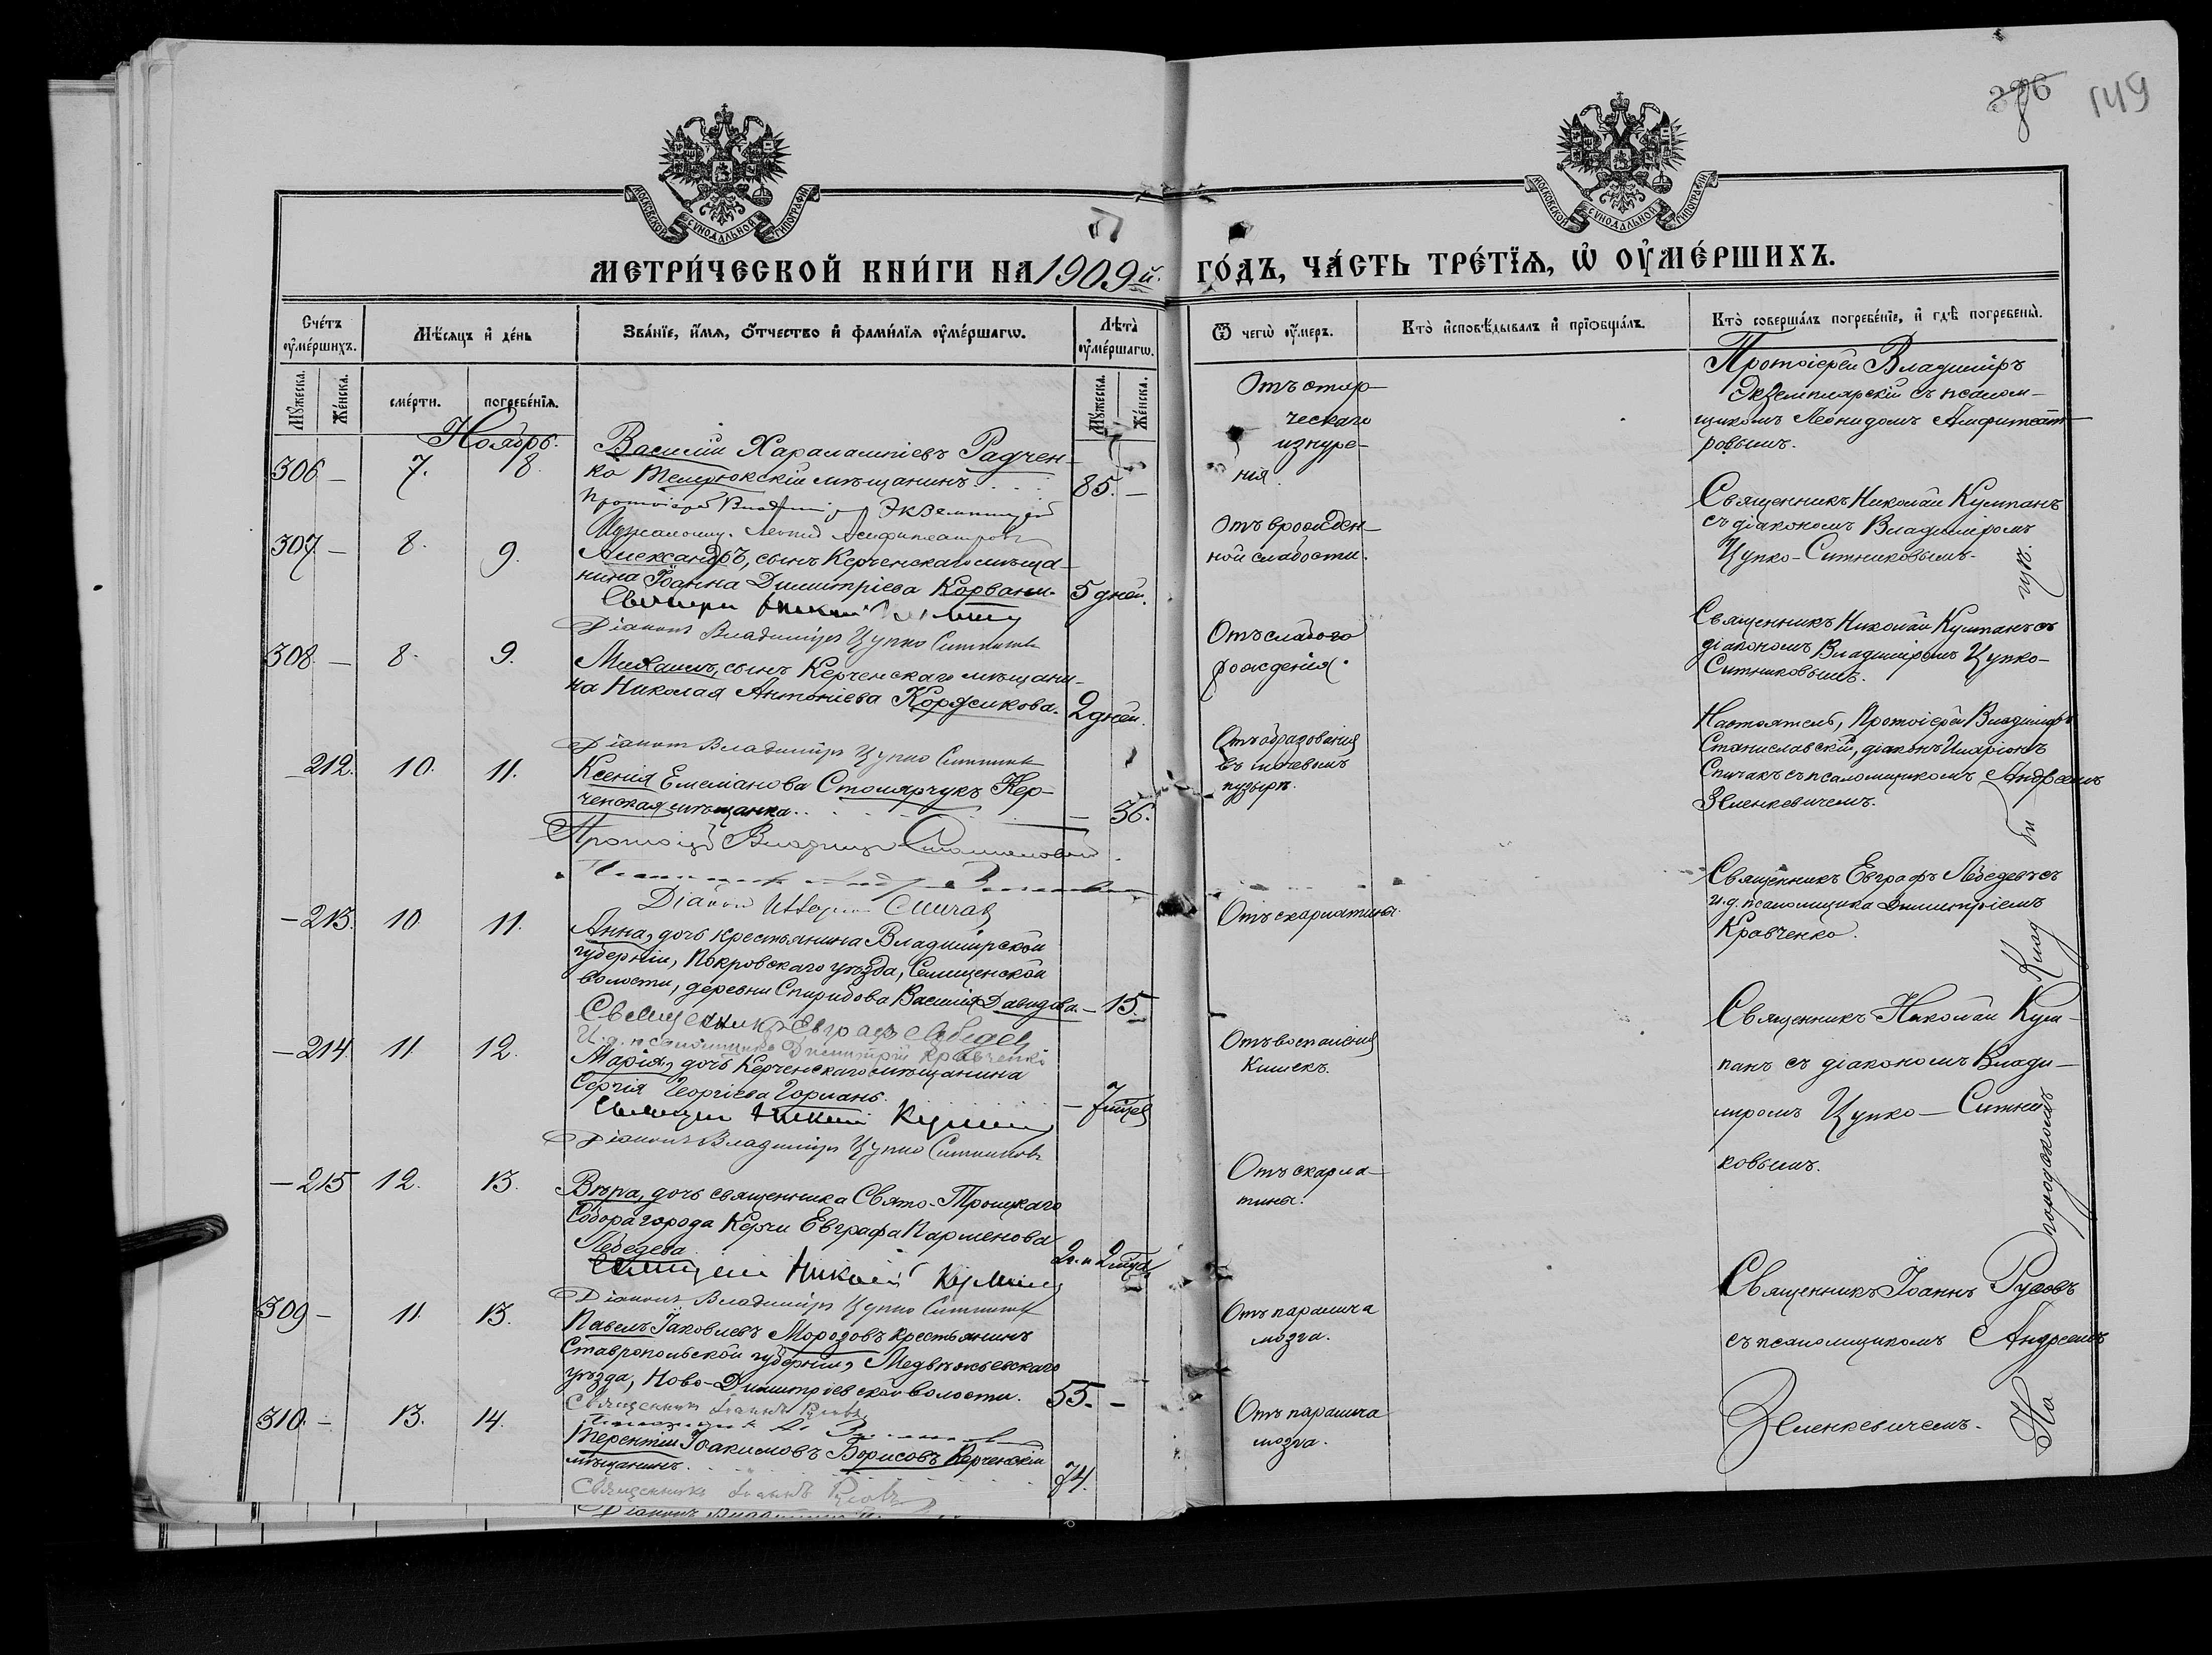 386
149
МОСКОВСКОЙ СУНОДАЛЬНОЙ ТИПОГРАФІИ
МОСКОВСКОЙ СУНОДАЛЬНОЙ ТИПОГРАФІИ
МЕТРИ́ЧЕСКОЙ КНИ́ГИ НА 1909й. ГО́ДЪ, ЧА́СТЬ ТРЕ́ТЇѦ, Ѡ҆ ОУ҆МЕ́РШИХЪ.
Сче́тъ оу҆ме́ршихъ.
Мѣ́сяцъ и҆ де́нь
Зва́нїе, и҆́мѧ, ѻ҆́тчество и҆ фами́лїѧ оу҆ме́ршагѡ.
Лѣ́та оу҆ме́ршагѡ.
Ѿ чегѡ̀ оу҆́меръ.
Кто̀ и҆сповѣ́дывалъ и҆ прїѡбща́лъ.
Кто̀ соверша́лъ погребе́нїе, и҆ гдѣ̀ погребены̀.
Мꙋ́жеска.
Же́нска.
сме́рти.
погребе́нїѧ.
Мꙋ́жеска.
Же́нска.
Ноябрь.
306 — 7. 8.
Василій Харалампіевъ Радчен-
ко Темрюкскій мѣщанинъ. 85. —
Протоіерей Владиміръ Экземплярскій
Псаломщ. Леонид Амфитеатров
Отъ стар-
ческаго
изнуре-
нія.
Протоіерей Владиміръ
Экземплярскій съ псалом-
щикомъ Леонидомъ Амфитеат-
ровымъ.
307 — 8. 9.
Александръ, сынъ Керченскаго мѣща-
нина Іоанна Димитріева Корвани. 5 дней.
Діаконъ Владиміръ Цупко Ситников
Отъ врожден-
ной слабости.
Священникъ Николай Кумпанъ
съ діакономъ Владиміромъ
Цупко-Ситниковымъ.
308. — 8. 9.
Михаилъ, сынъ Керченскаго мѣщани-
на Николая Антоніева 2 дней.
Діаконъ Владиміръ Цупко Ситников
Отъ слабого
рожденія.
Священникъ Николай Кумпанъ съ
діакономъ Владиміромъ Цупко-
Ситниковымъ.
— 212. 10. 11.
Ксенія Емеліанова Столярчукъ Кер-
ченская мѣщанка. — 36.
Протоіер Владимир Станиславскій
Діакон Иларіон Спичак
Отъ образованія
въ мочевымъ
пузырѣ.
Настоятель, Протоіерей Владиміръ
Станиславскій, діаконъ Иларіонъ
Спичакъ съ псаломщикомъ Андреемъ
Зленкевичемъ.
— 213. 10 11.
Анна, дочь крестьянина Владимірской
губерніи, Покровскаго уѣзда, Селищенской
волости, деревни Спиридова Василія Давидова. — 15.
Священникъ Евграф Лебедев
И.д. псаломщика Димитрій Кравченко
Отъ скарлатины.
Священникъ Евграфъ Лебедевъ съ
и.д. псаломщика Димитріемъ
Кравченко.
— 214. 11 12.
Марія, дочь Керченскаго мѣщанина
Сергія Георгіева Горлань. — 7 мѣс.
Священ Николай Кумпан
Діаконъ Владиміръ Цупко Ситниковъ
Отъ воспаленія
Кишекъ.
Священникъ Николай Кум-
панъ съ діакономъ Влади-
міромъ Цупко — Ситни-
ковымъ.
— 215 12. 13.
Вѣра, дочь священника Свято-Троицкаго
Собора города Керчи Евграфа Парменова
Лебедева 2 г. и 2 мѣс.
Священ Николай Кумпан
Діаконъ Владиміръ Цупко Ситников
Отъ скарла-
тины.
309 — 11. 13.
Павелъ Іаковлевъ Морозовъ крестьянинъ
Ставропольской губерніи, Медвѣжьевскаго
уѣзда, Ново-Димитріевской волости. 55. —
Священникъ Іоаннъ Русовъ
Отъ паралича
мозга.
Священникъ Іоаннъ Русовъ
съ псаломщикомъ Андреемъ
Зленкевичемъ.
310. — 13. 14.
Терентій Іоакимовъ Борисовъ Керченскій
мѣщанинъ. 74.
Священникъ Іоаннъ Русовъ
Отъ паралича
мозга.
На городскомъ кладбищѣ.